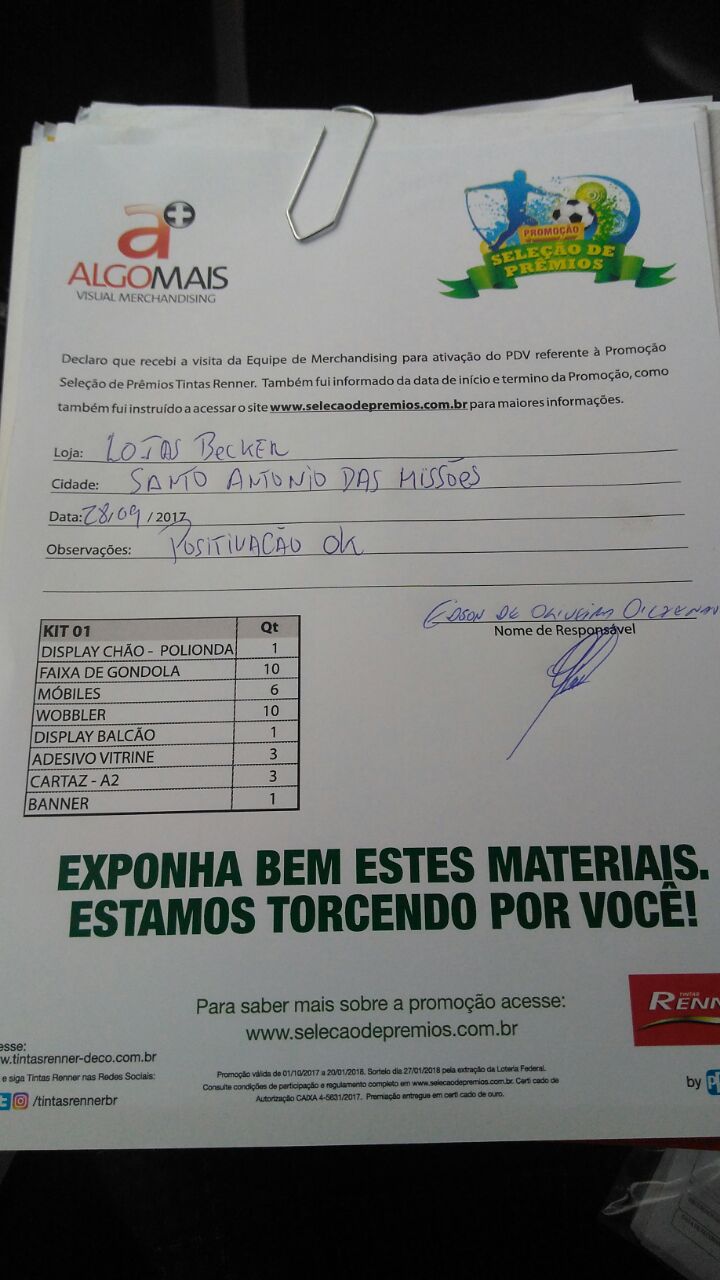 a+
ALGOMAIS
VISUAL MERCHANDISING
PROMOÇÃO
SELEÇÃO DE
PRÊMIOS
Declaro que recebi a visita da Equipe de Merchandising para ativação do PDV referente à Promoção
Seleção de Prêmios Tintas Renner. Também fui informado da data de início e termino da Promoção, como
também fui instruído a acessar o site www.selecaodepremios.com.br para maiores informações.
Loja: LOJAS BECKER
Cidade: SANTO ANTONIO DAS MISSÕES
Data: 28/09 / 2017
Observações: POSITIVAÇÃO OK
EDSON DE OLIVEIRA
Nome de Responsável
KIT 01 Qt
DISPLAY CHÃO - POLIONDA 1
FAIXA DE GONDOLA 10
MÓBILES 6
WOBBLER 10
DISPLAY BALCÃO 1
ADESIVO VITRINE 3
CARTAZ - A2 3
BANNER 1
EXPONHA BEM ESTES MATERIAIS.
ESTAMOS TORCENDO POR VOCÊ!
Para saber mais sobre a promoção acesse:
www.selecaodepremios.com.br
TINTAS
RENN
esse:
w.tintasrenner-deco.com.br
e siga Tintas Renner nas Redes Sociais:
/tintasrennerbr
Promoção válida de 01/10/2017 a 20/01/2018. Sorteio dia 27/01/2018 pela extração da Loteria Federal.
Consulte condições de participação e regulamento completo em www.selecaodepremios.com.br. Certi cado de
Autorização CAIXA 4-5631/2017. Premiação entregue em certi cado de ouro.
by